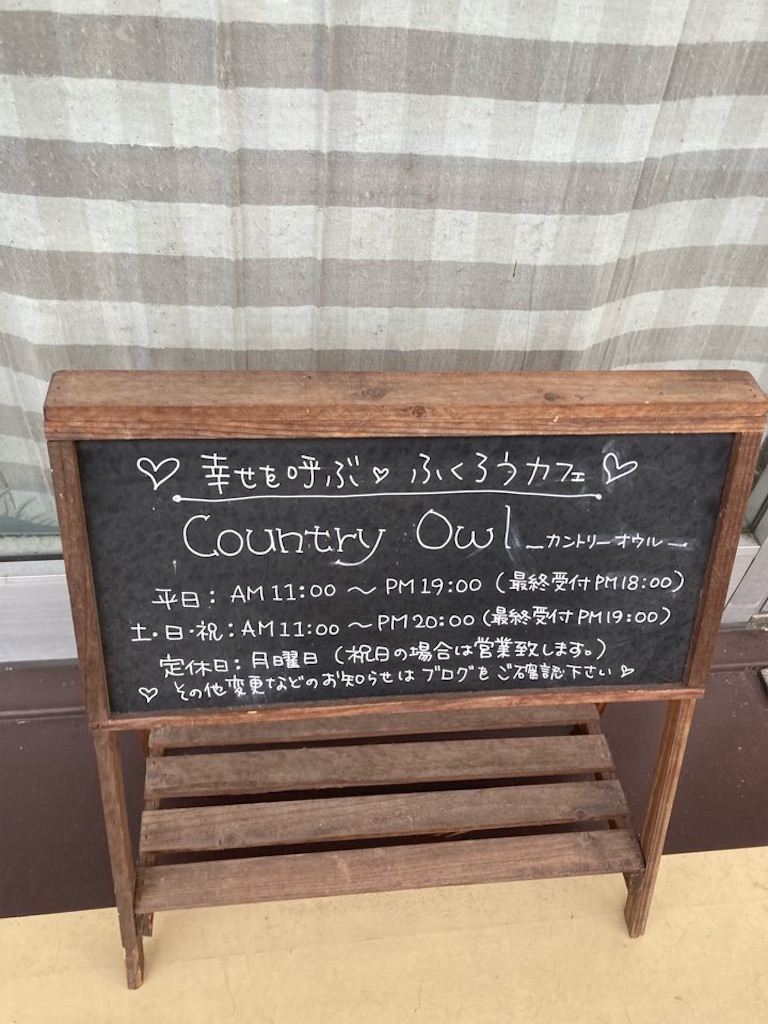 ♡ 幸せを呼ぶ♡ ふくろうカフェ ♡
Country Owl －カントリーオウル－
平日：AM11:00 ～ PM19:00（最終受付PM18:00）
土・日・祝：AM11:00 ～ PM20:00（最終受付PM19:00）
定休日：月曜日（祝日の場合は営業致します。）
♡ その他変更などのお知らせはブログをご確認下さい♡